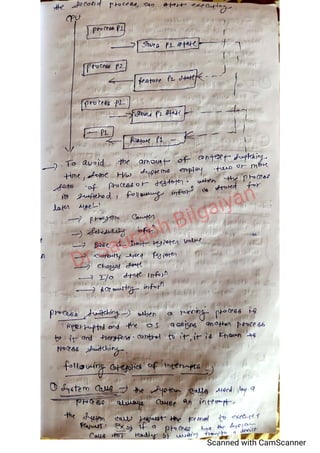 the second process can start executing.
CPU
process P1
Saves P1 state
process P2
Restore P1 state
process P2
Saved P1 state
P1
Restore P1
→ To avoid the amount of context switching
time, some H/W systems employ two or more
sets of processor registers. when the process
is switched, following inforⁿ is stored for
later use:
→ program Counter
→ Scheduling inforⁿ
→ Base & limit register value
→ currently used register
→ Changed state
→ I/O state inforⁿ
→ Accounting inforⁿ
process switching → when a running process is
interrupted and the OS assigns another process
to it and transfers control to it, it is known as
process switching.
following categories of interrupts
① System Calls → the system calls used by a
process always causes an interrupt.
the system calls request the kernel to execute
request. Ex) if a process has the system
Calls for reading or writing through a device
Bilgaiyan
Scanned with CamScanner